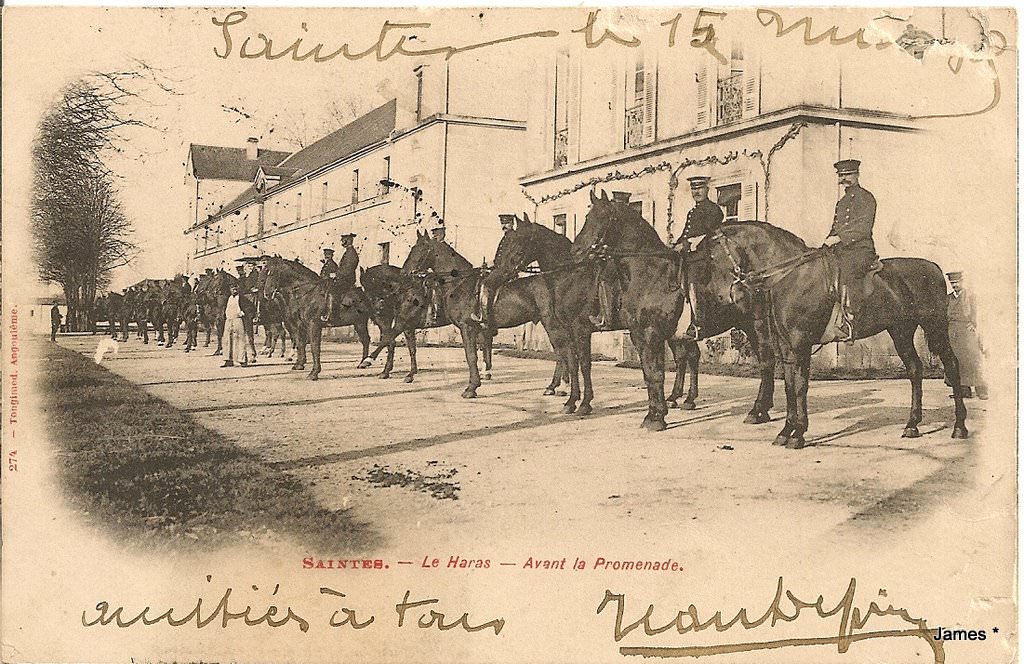 Saintes le 15 Mai
274 — Tongimed. Angoulême.
SAINTES. — Le Haras — Avant la Promenade.
amitiés à tous
James *